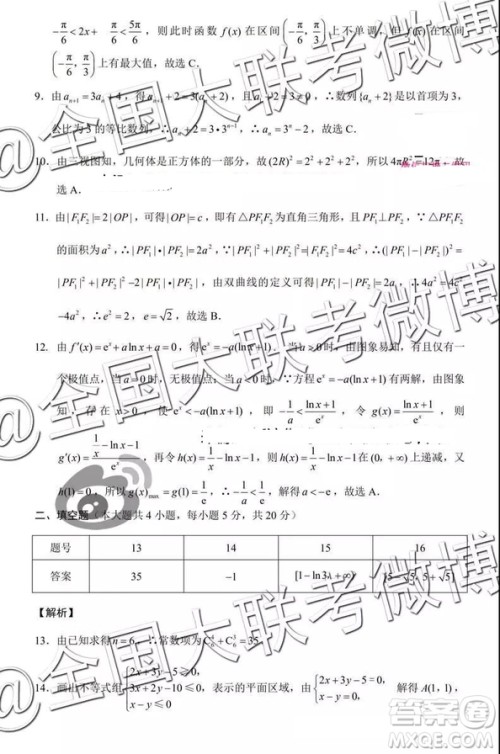 -π/6<2x+π/6<5π/6，则此时函数 f(x) 在区间(-π/6, π/3)上不单调，但 f(x) 在区间
(-π/6, π/3)上有最大值，故选 C．
9. 由 aₙ₊₁=3aₙ+4，得 aₙ₊₁+2=3(aₙ+2)，且 a₁+2=3≠0，∴数列{aₙ+2}是以首项为 3，
公比为 3 的等比数列，∴aₙ+2=3•3ⁿ⁻¹，∴aₙ=3ⁿ-2，故选 C．
10. 由三视图知，几何体是正方体的一部分，故(2R)²=2²+2²+2²，所以4πR²=12π，故
选 A．
11. 由|F₁F₂|=2|OP|，可得|OP|=c，即有△PF₁F₂为直角三角形，且PF₁⊥PF₂，∵△PF₁F₂
的面积为a²，∴|PF₁|•|PF₂|=2a²，∵|PF₁|²+|PF₂|²=|F₁F₂|²=4c²，∴(|PF₁|-|PF₂|)²=
|PF₁|²+|PF₂|²-2|PF₁|•|PF₂|，由双曲线的定义可得|PF₁|-|PF₂|=2a，∴4a²=4c²
-4a²，∴e²=2，e=√2，故选 B．
12. 由f′(x)=eˣ+a ln x+a=0，得eˣ=-a(ln x+1)，当a>0时，由图象易知，有且仅有一
个极值点，当a=0时，无极值点，当a<0时，∵方程eˣ=-a(ln x+1)有两解，由图象
知，存在x>0，使eˣ<-a(ln x+1)，即-1/a<(ln x+1)/eˣ，令g(x)=(ln x+1)/eˣ，则
g′(x)=(1/x-ln x-1)/eˣ，再令h(x)=1/x-ln x-1，则h(x)=1/x-ln x-1在(0,+∞)上递减，又
h(1)=0，所以g(x)max=g(1)=1/e，∴-1/a<1/e，解得a<-e，故选 A．
二、填空题（本大题共 4 小题，每小题 5 分，共 20 分）
题号 13 14 15 16
答案 35 -1 [1-ln3λ+∞) [5-√5, 5+√5]
【解析】
13. 由已知求得n=6，∴常数项为C₆⁴+C₆³=35．
14. 画出不等式组{2x+3y-5≥0, 3x+2y-10≤0, x-y≤0，表示的平面区域，由{2x+3y-5=0, x-y=0，解得A(1,1)，
@全国大联考微博
@全国大联考微博
@全国大联考微博
答案圈
MXQE.COM